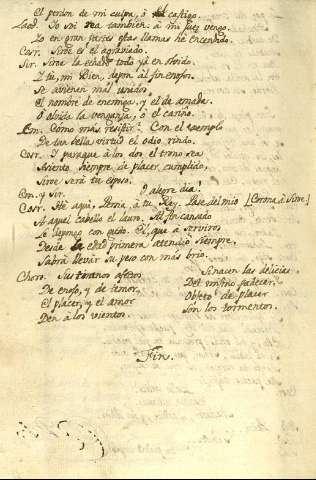 El perdon de mi culpa, ò el castigo.
Laod. Yo soi rea tambien. à mi Juez vengo.
Yo en gran parte estas llamas he encendido.
Cosr. Siroe es el agraviado.
Sir. Siroe la echadò todo yà en olvido.
Y tu, mi Bien, depòn al fin enojos.
Se avienen mal unidos
El nombre de enemiga, y el de amada.
O olvida la venganza, ò el cariño.
Em. Como mas resistir? Con el exemplo
De tan bella virtud el odio rindo.
Cosr. Y paraque à los dos el trono sea
Assiento siempre de placer cumplido,
Siroe serà tu esposo.
Em. y Sir. O alegre dia!
Cosr. Hè aqui, Persia, à tu Rey. Passe del mio [Corona à Siroe]
A aquel cabello el lauro. Al fin cansado
Le depongo con gusto. El, que à serviros
Desde la edad primera atendiò siempre,
Sabrà llevar su peso con mas brio.
Choro. Sus tiranos afectos
De enojo, y de temor,
El placer, y el amor
Den à los vientos.
Si nacen las delicias
Del mismo padecer,
Objeto de placer
Son los tormentos.
Fin.